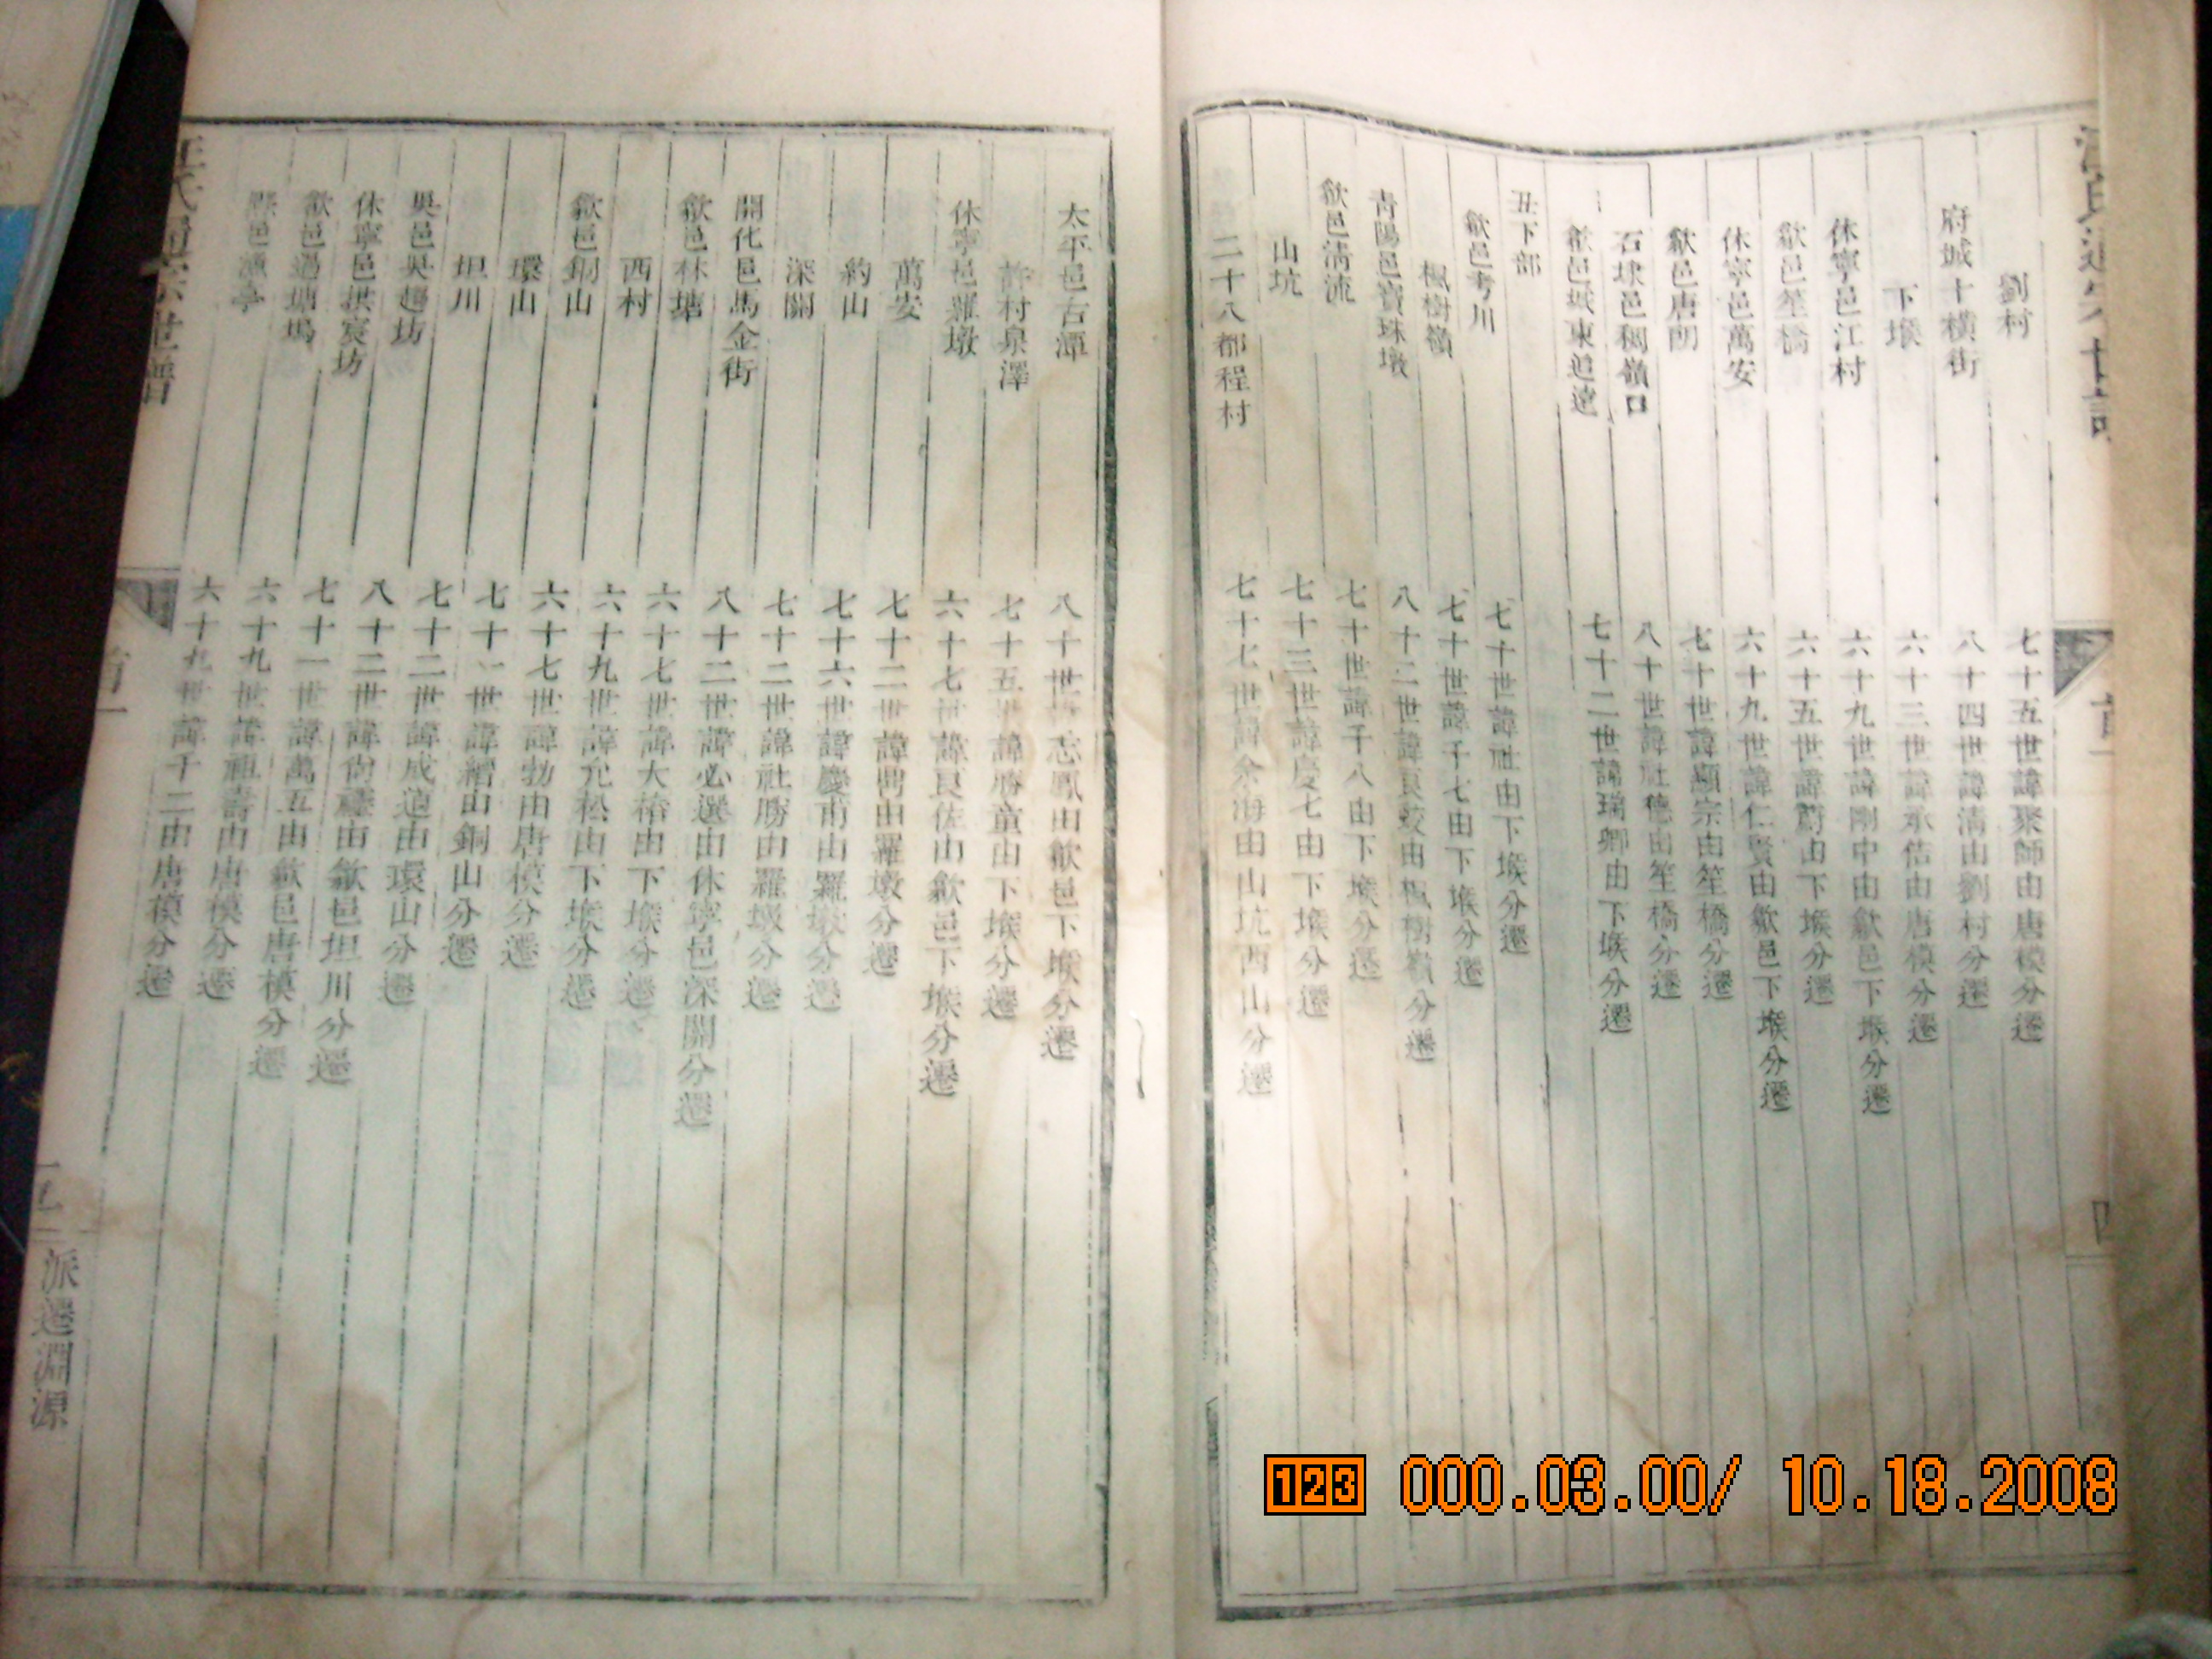 劉村 七十五世諱聚師由唐模分遷
府城十橫街 八十四世諱清由劉村分遷
下堠 六十三世諱承佸由唐模分遷
休寧邑江村 六十九世諱剛中由歙邑下堠分遷
歙邑笙橋 六十五世諱蔚由下堠分遷
休寧邑萬安 六十九世諱仁賢由歙邑下堠分遷
歙邑唐朗 七十世諱顯宗由笙橋分遷
石埭邑稠嶺口 八十世諱社德由笙橋分遷
歙邑城東追遠 七十二世諱瑞卿由下堠分遷
丑下部
歙邑考川 七十世諱社由下堠分遷
楓樹嶺 七十世諱千七由下堠分遷
青陽邑寶珠墩 八十二世諱良 由楓樹嶺分遷
歙邑淸流 七十世諱千八由下堠分遷
山坑 七十三世諱慶七由下堠分遷
二十八都程村 七十七世諱余海由山坑西山分遷
首一
四
太平邑古潭 八十世 志鳳由歙邑下堠分遷
許村泉澤 七十五世諱勝童由下堠分遷
休寧邑羅墩 六十七世諱良佐由歙邑下堠分遷
萬安 七十二世諱 由羅墩分遷
約山 七十六世諱慶甫由羅墩分遷
深關 七十二世諱社勝由羅墩分遷
開化邑馬金街 八十二世諱必選由休寧邑深關分遷
歙邑林塘 六十七世諱大椿由下堠分遷
西村 六十九世諱允松由下堠分遷
歙邑銅山 六十七世諱勃由唐模分遷
環山 七十一世諱 由銅山分遷
坦川 七十二世諱成道由環山分遷
吳邑吳趨坊 八十二世諱尙 由歙邑坦川分遷
休寧邑拱宸坊 七十一世諱萬五由歙邑唐模分遷
歙邑過塘塢 六十九世諱祖壽由唐模分遷
黟邑漁亭 六十九世諱千二由唐模分遷
汪氏通宗世譜
首一
五
派遷淵源
123 000.03.00/ 10.18.2008